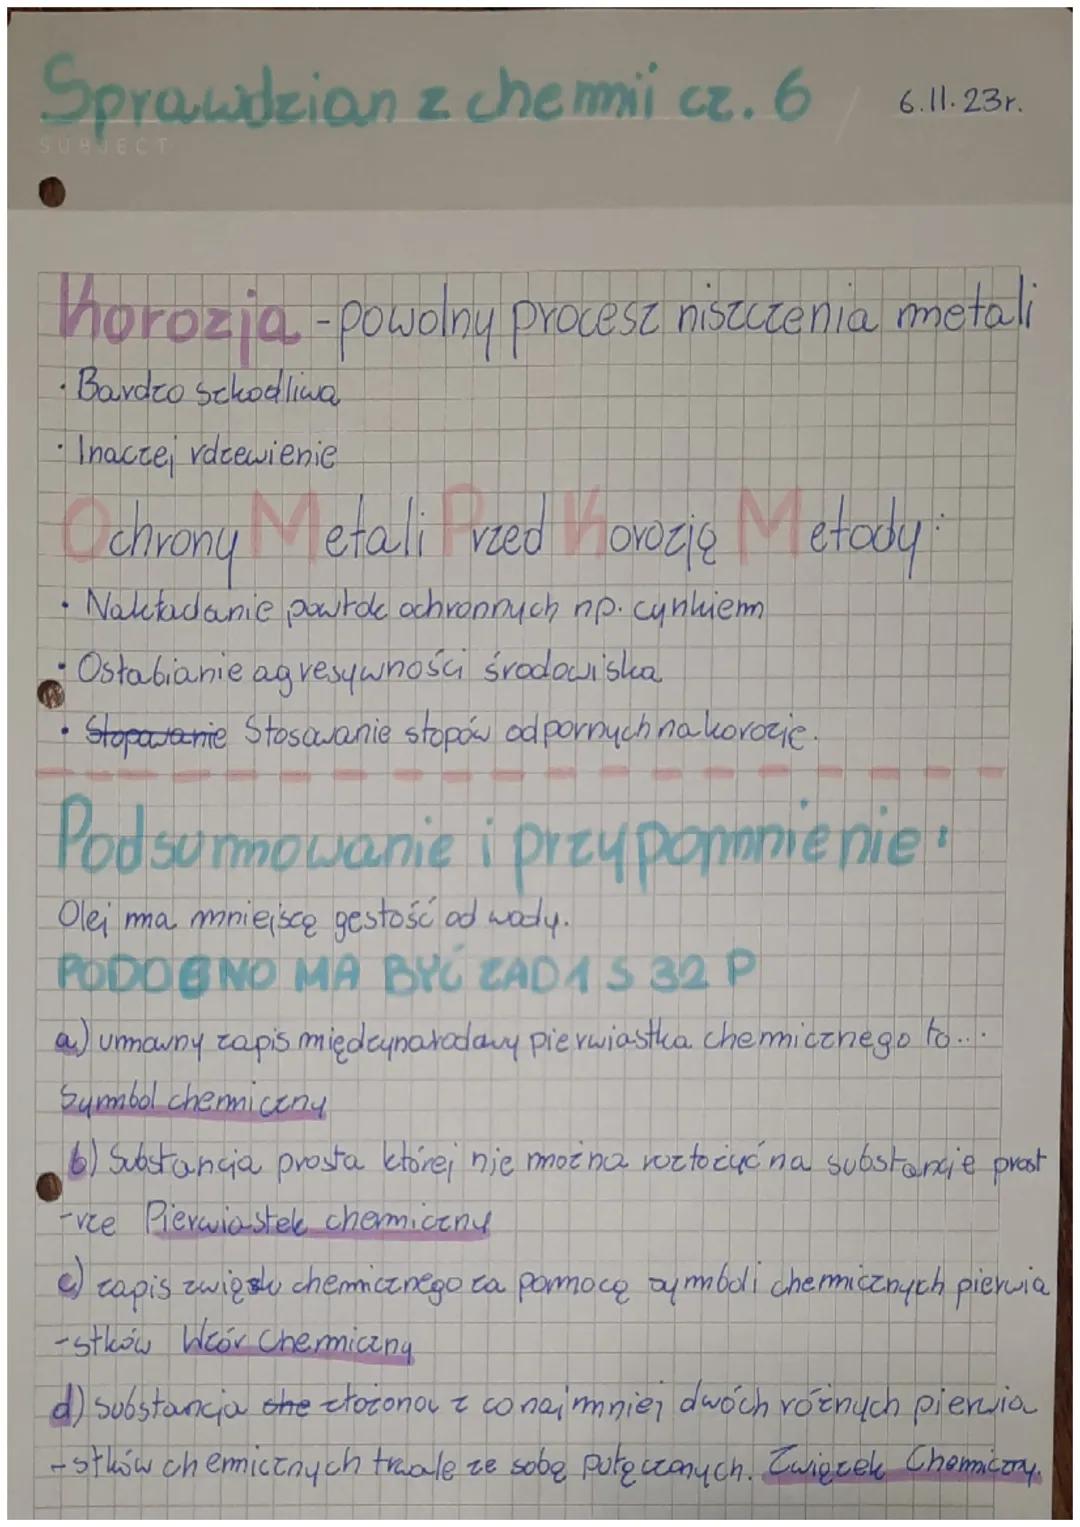 Sprawdzian z chemii cz. 6
6.11.23r.
SUBJECT
Korozja - powolny procesz niszczenia metali
• Bardzo szkodliwa
• Inaczej rdzewienie
Ochrony Metali Przed Korozją Metody:
• Nakładanie powłok ochronnych np. cynkiem
• Osłabianie agresywności środowiska
• Stopowanie Stosowanie stopów odpornych na korozję.
Podsumowanie i przypomnienie:
Olej ma mniejszą gęstość od wody.
PODOBNO MA BYĆ ZAD 1 S 32 P
a) umowny zapis międzynarodowy pierwiastka chemicznego to...
Symbol chemiczny
b) Substancja prosta której nie można rozłożyć na substancje prost
-rze Pierwiastek chemiczny
c) zapis związku chemicznego za pomocą symboli chemicznych pierwia
-stków Wzór Chemiczny
d) Substancja che złożona z co najmniej dwóch różnych pierwia
-stków chemicznych trwale ze sobą połączonych. Związek Chemiczny.